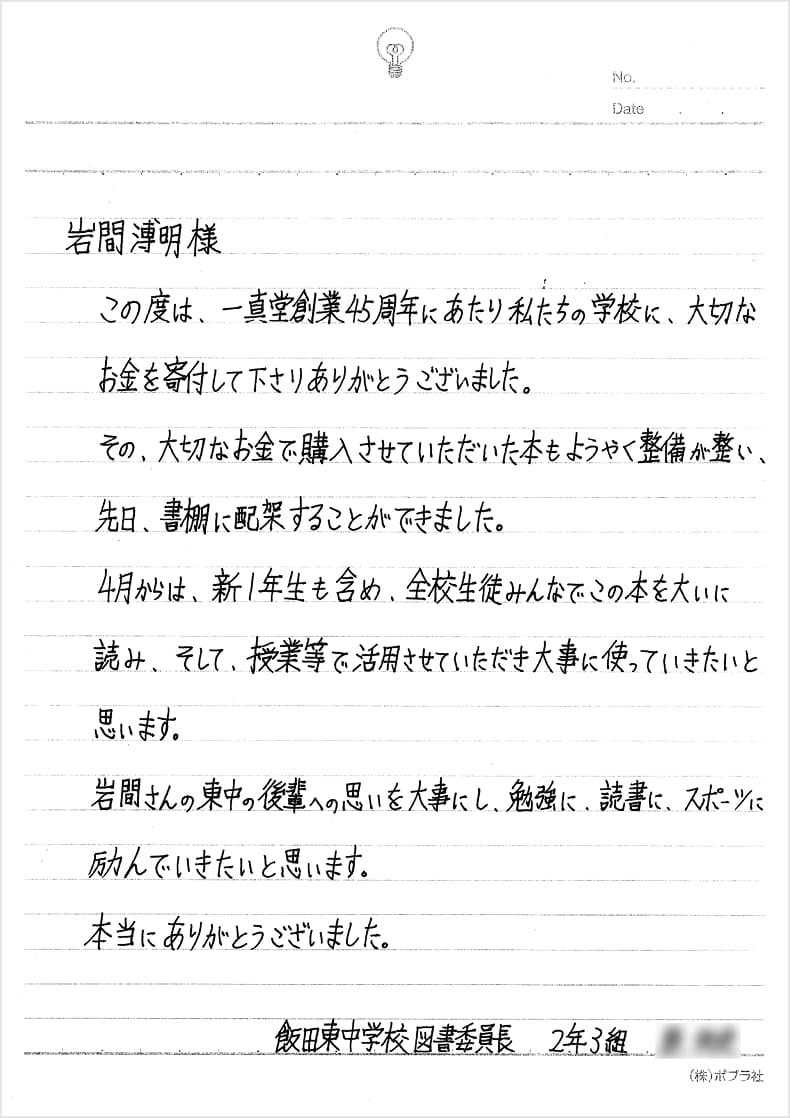 No.
Date . .
岩間溥明様
この度は、一真堂創業45周年にあたり私たちの学校に、大切な
お金を寄付して下さりありがとうございました。
その、大切なお金で購入させていただいた本もようやく整備が整い、
先日、書棚に配架することができました。
4月からは、新1年生も含め、全校生徒みんなでこの本を大いに
読み、そして、授業等で活用させていただき大事に使っていきたいと
思います。
岩間さんの東中の後輩への思いを大事にし、勉強に、読書に、スポーツに
励んでいきたいと思います。
本当にありがとうございました。
飯田東中学校図書委員長 2年3組
(株)ポプラ社